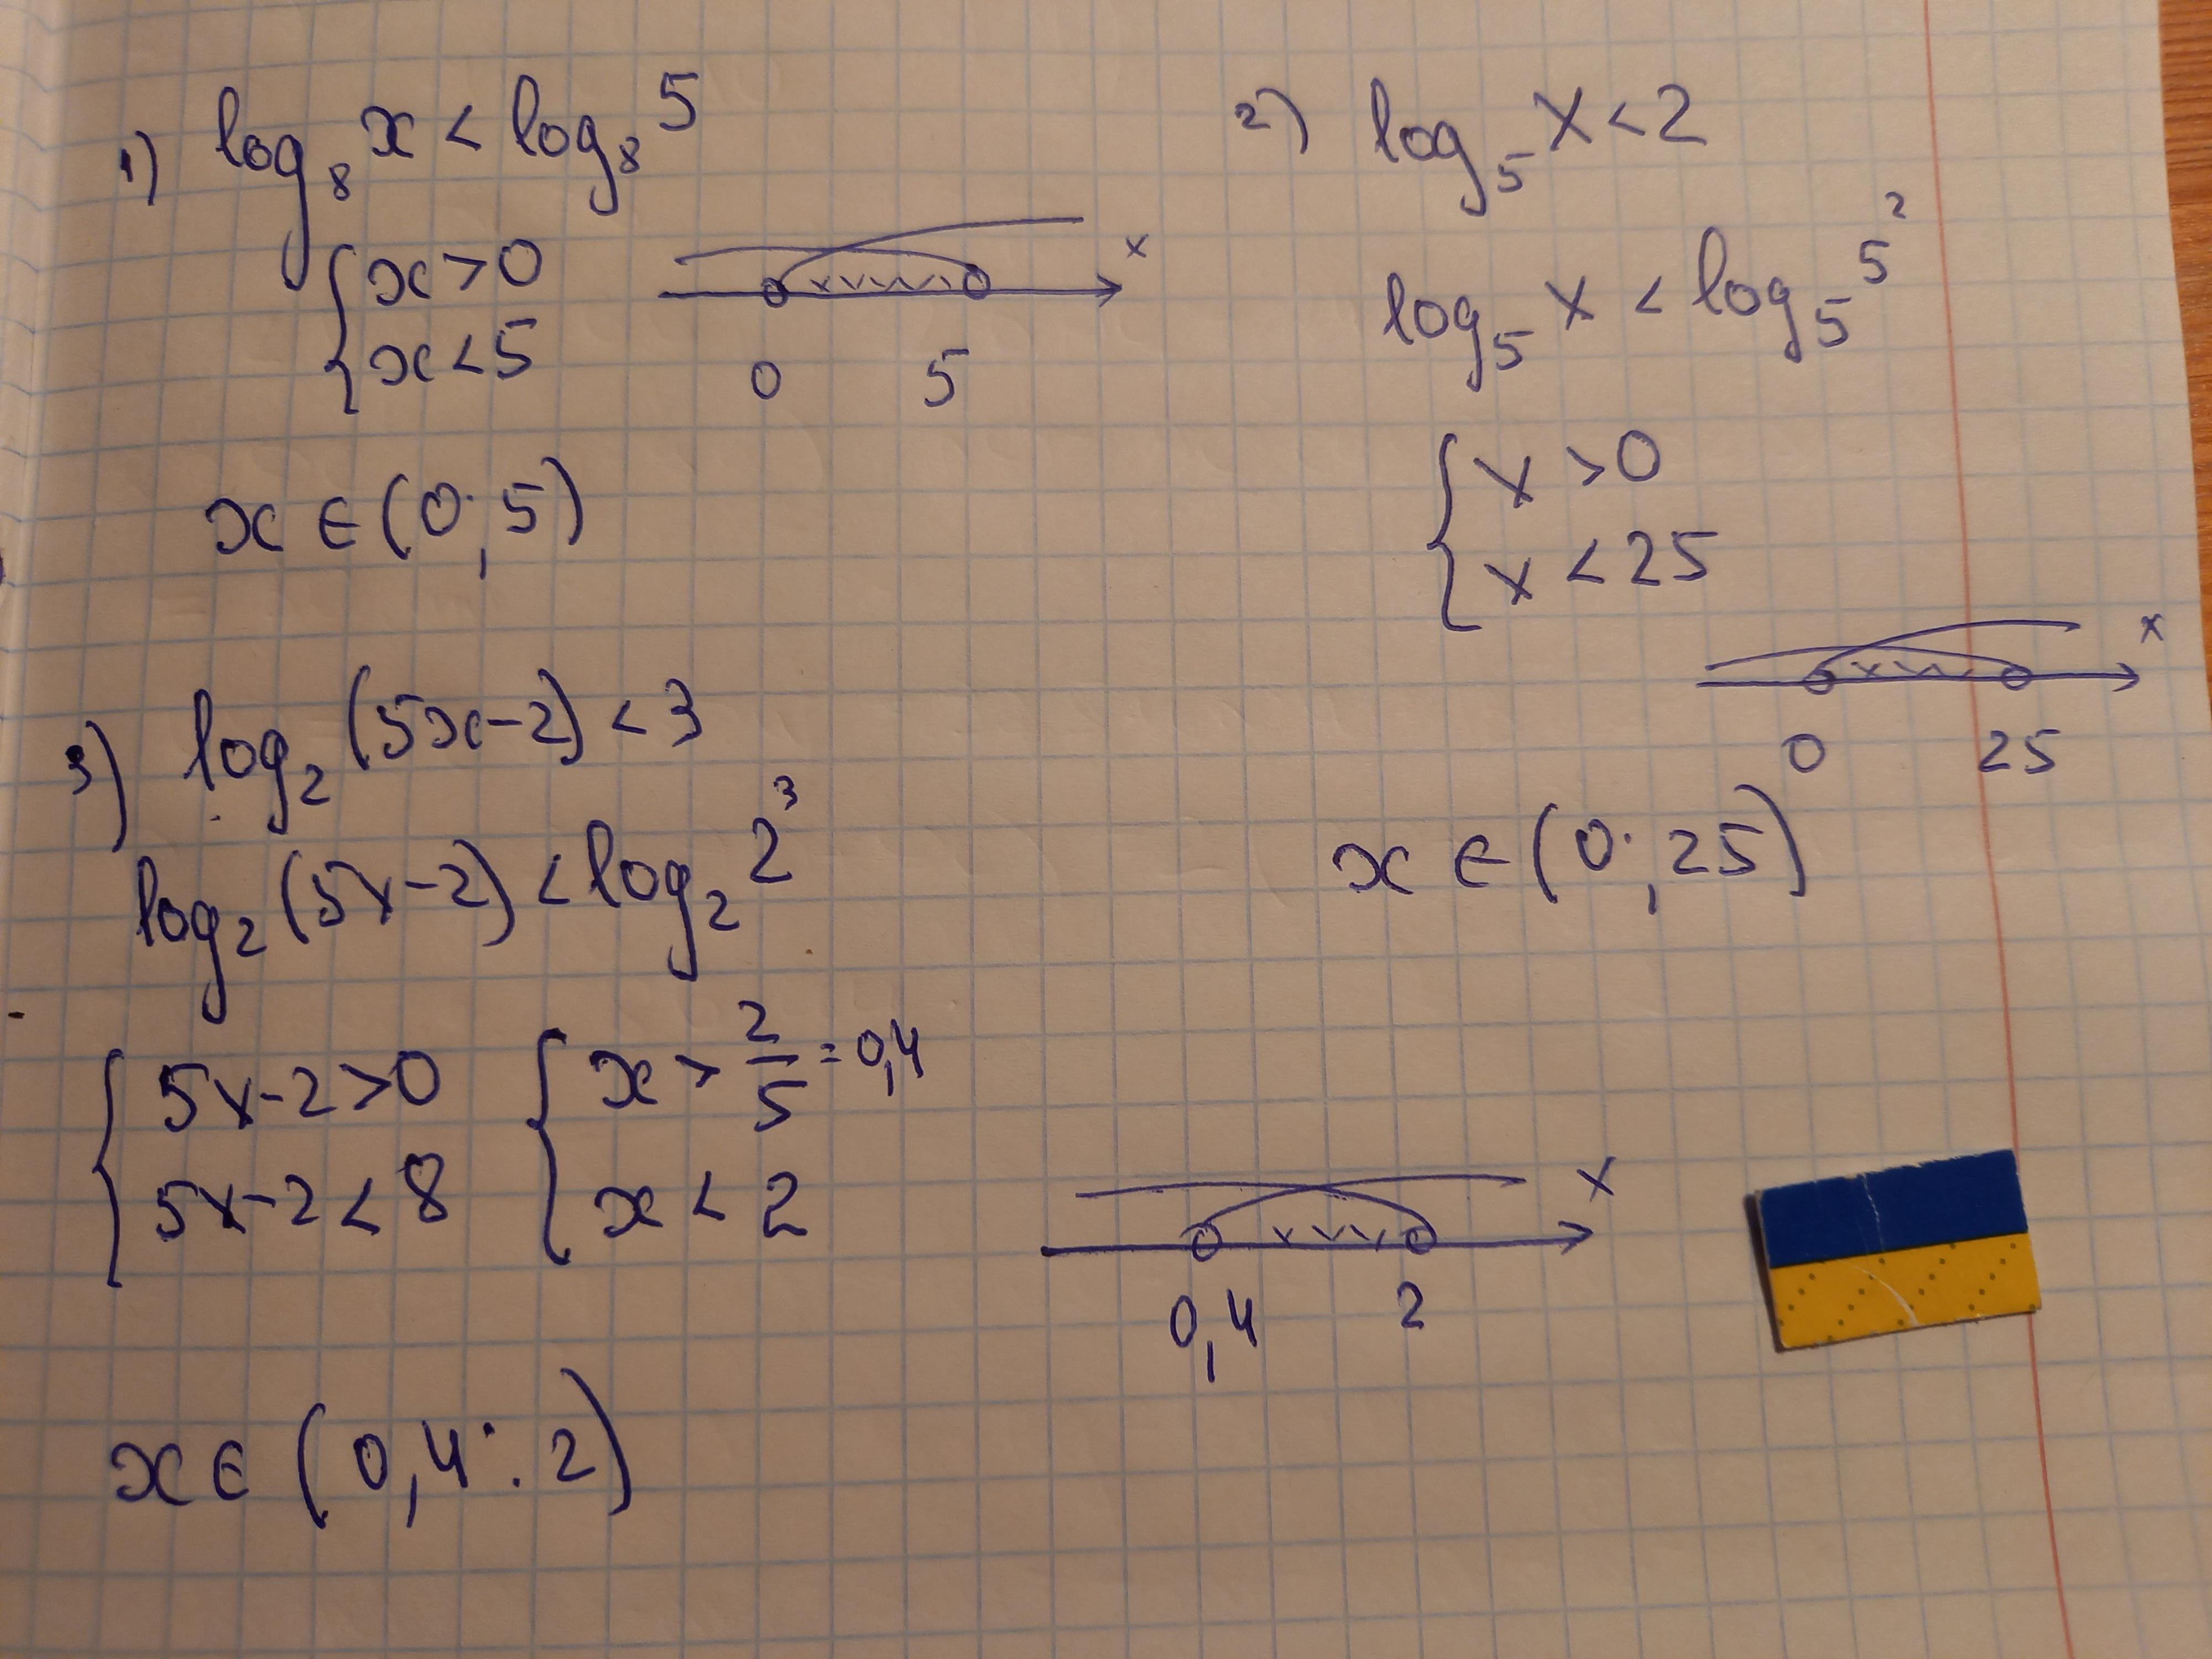 1) log₈ x < log₈ 5
{ x > 0
{ x < 5
x
0 5
x ∈ (0; 5)
2) log₅ x < 2
log₅ x < log₅ 5²
{ x > 0
{ x < 25
x
0 25
x ∈ (0; 25)
3) log₂ (5x-2) < 3
log₂ (5x-2) < log₂ 2³
{ 5x-2 > 0 { x > 2/5 = 0,4
{ 5x-2 < 8 { x < 2
x
0,4 2
x ∈ (0,4 ; 2)